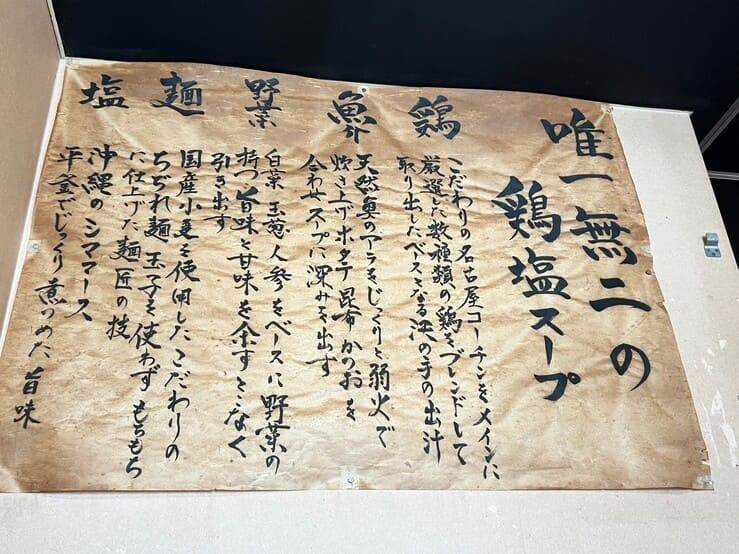 唯一無二の
鶏塩スープ
鶏
こだわりの名古屋コーチンをメインに
厳選した数種類の鶏をブレンドして
取り出したベースとなる決め手の出汁
魚介
天然魚のアラをじっくりと弱火で
炊き上げホタテ昆布かつおを
合わせスープに深みを出す
野菜
白菜 玉葱 人参をベースに野菜の
持つ旨味と甘味を余すことなく
引き出す
麺
国産小麦を使用したこだわりの
ちぢれ麺 玉子を使わずもちもち
に仕上げた麺匠の技
塩
沖縄のシママース
平釜でじっくり煮つめた旨味